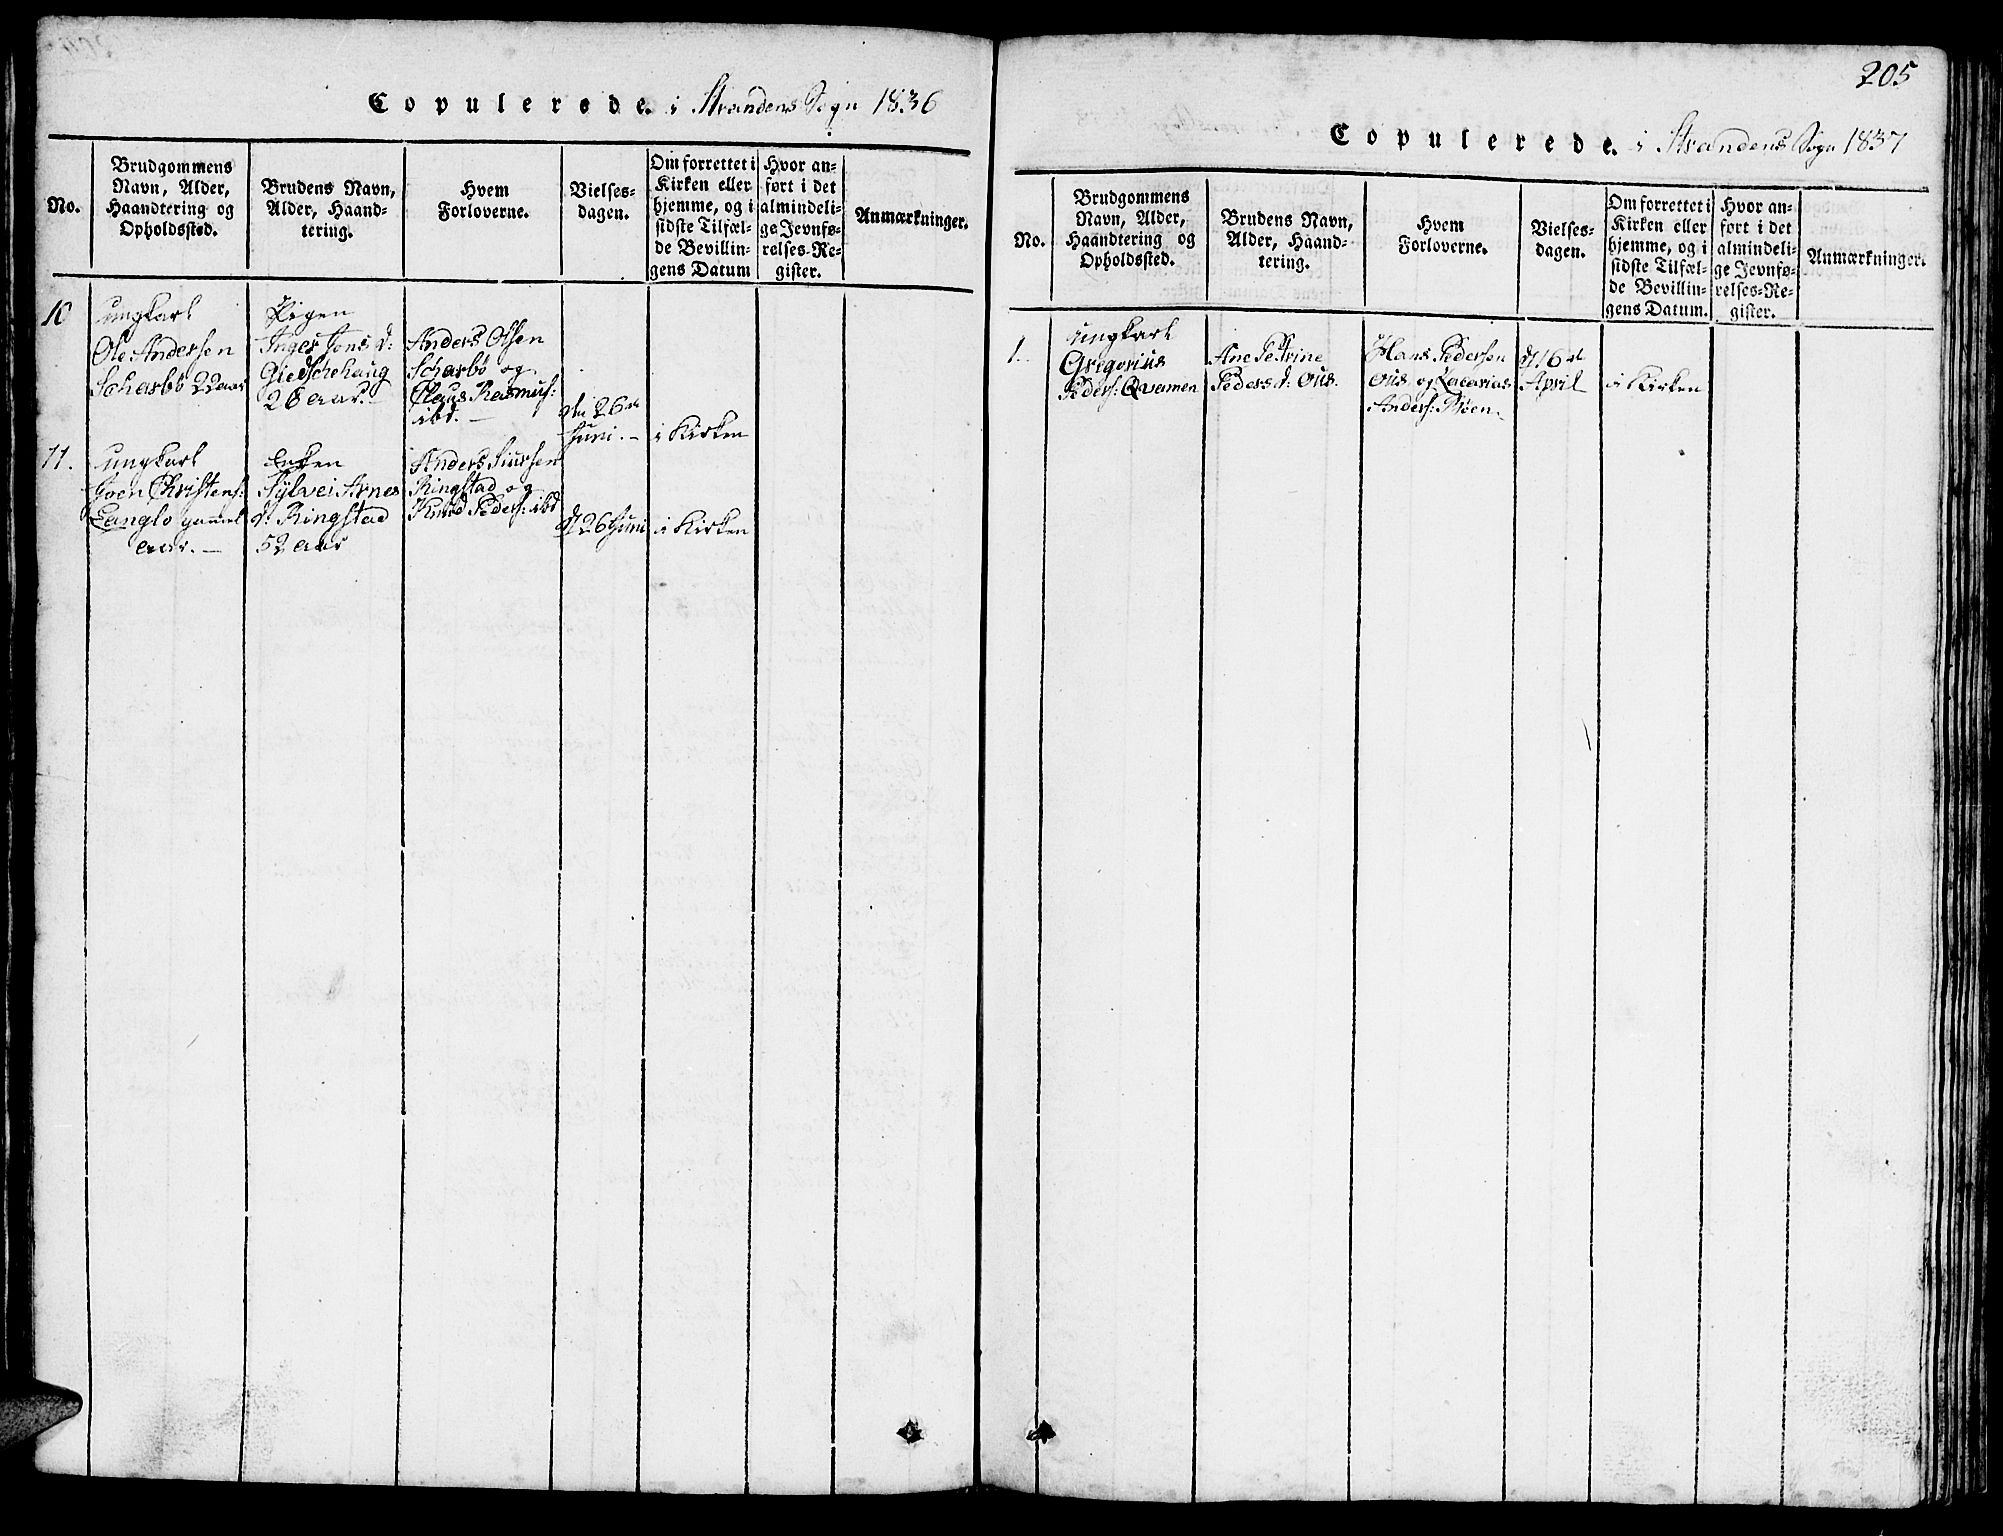 Copulerede. i Strandens Sogn 1836
No.
Brudgommens
Navn, Alder,
Haandtering og
Opholdssted.
Brudens Navn,
Alder, Haand-
tering.
Hvem
Forloverne.
Vielses-
dagen.
Om forrettet i
Kirken eller
hjemme, og i
sidste Tilfæl-
de Bevillin-
gens Datum
Hvor an-
ført i det
almindeli-
ge Jevnfø-
relses-Re-
gister.
Anmærkninger.
10
ungkarl
Ole Andersen
Scharbö 22 aar
Pigen
Inger Jons d:
Giedschehaug
26 aar. -
Anders Olsen
Scharbö og
Claus Rasmus:
ibd. -
den 26de
Juni. -
i Kirken
11.
ungkarl
Joen Christens:
Langlo gammel
aar. -
Enken
Sÿlvei Arnes
d: Ringstad
52 aar
Anders Siursen
Ringstad og
Knud Peders: ibd
d 26 Juni
i Kirken
205
Copulerede. i Strandens Sogn 1837
No.
Brudgommens
Navn, Alder,
Haandtering og
Opholdssted.
Brudens Navn,
Alder, Haand-
tering.
Hvem
Forloverne.
Vielses-
dagen.
Om forrettet i
Kirken eller
hjemme, og i
sidste Tilfæl-
de Bevillin-
gens Datum.
Hvor an-
ført i det
almindeli-
ge Jevnfø-
relses-Re-
gister.
Anmærkninger.
1.
ungkarl
Gregorius
Peders: Qvamen
Ane Petrine
Peders d: Ous.
Hans Pedersen
Ous og Zacarias
Anders: Böen
d 16de
April
i Kirken